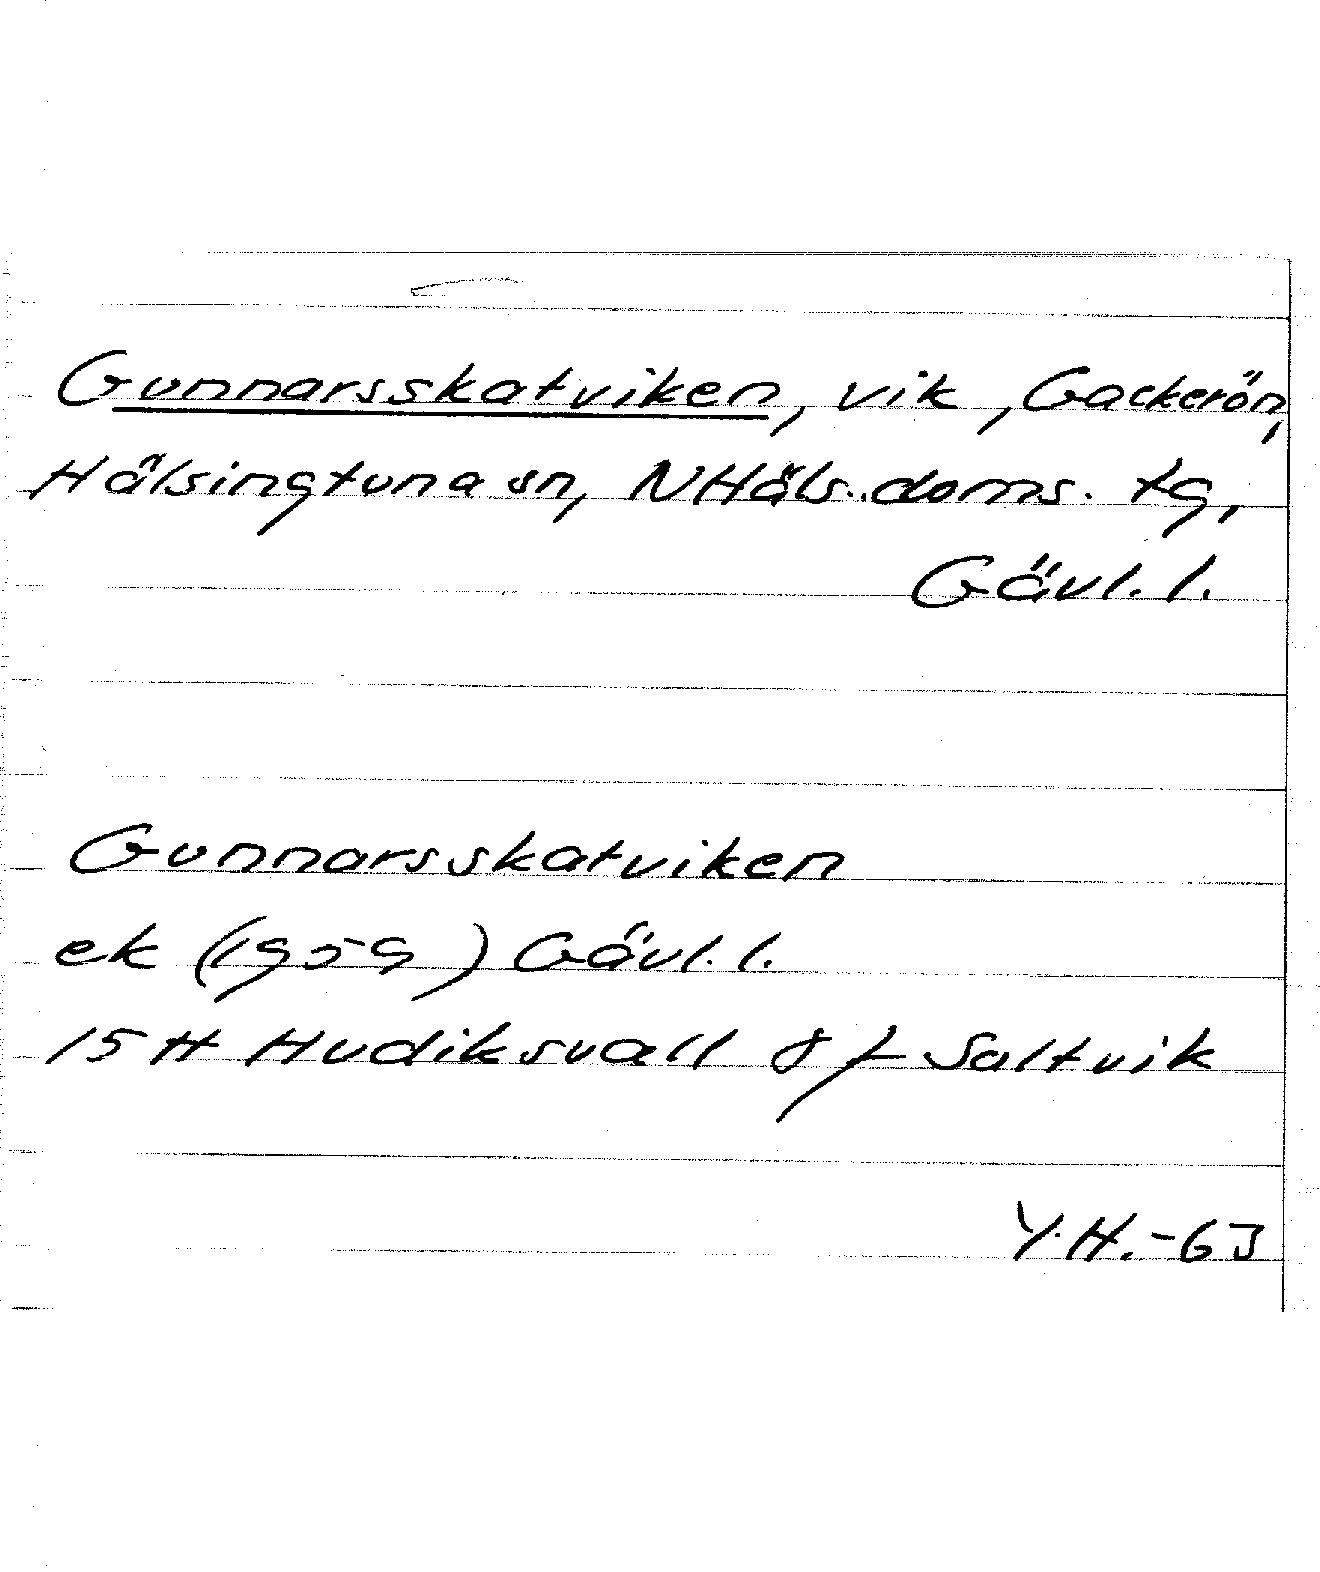 Gunnarsskatviken, vik, Gackerön,
Hälsingtuna sn, NHäls. doms. tg,
Gävl. l.
Gunnarsskatviken
ek (1959) Gävl. l.
15 H Hudiksvall 8 f Saltvik
Y.H.-63